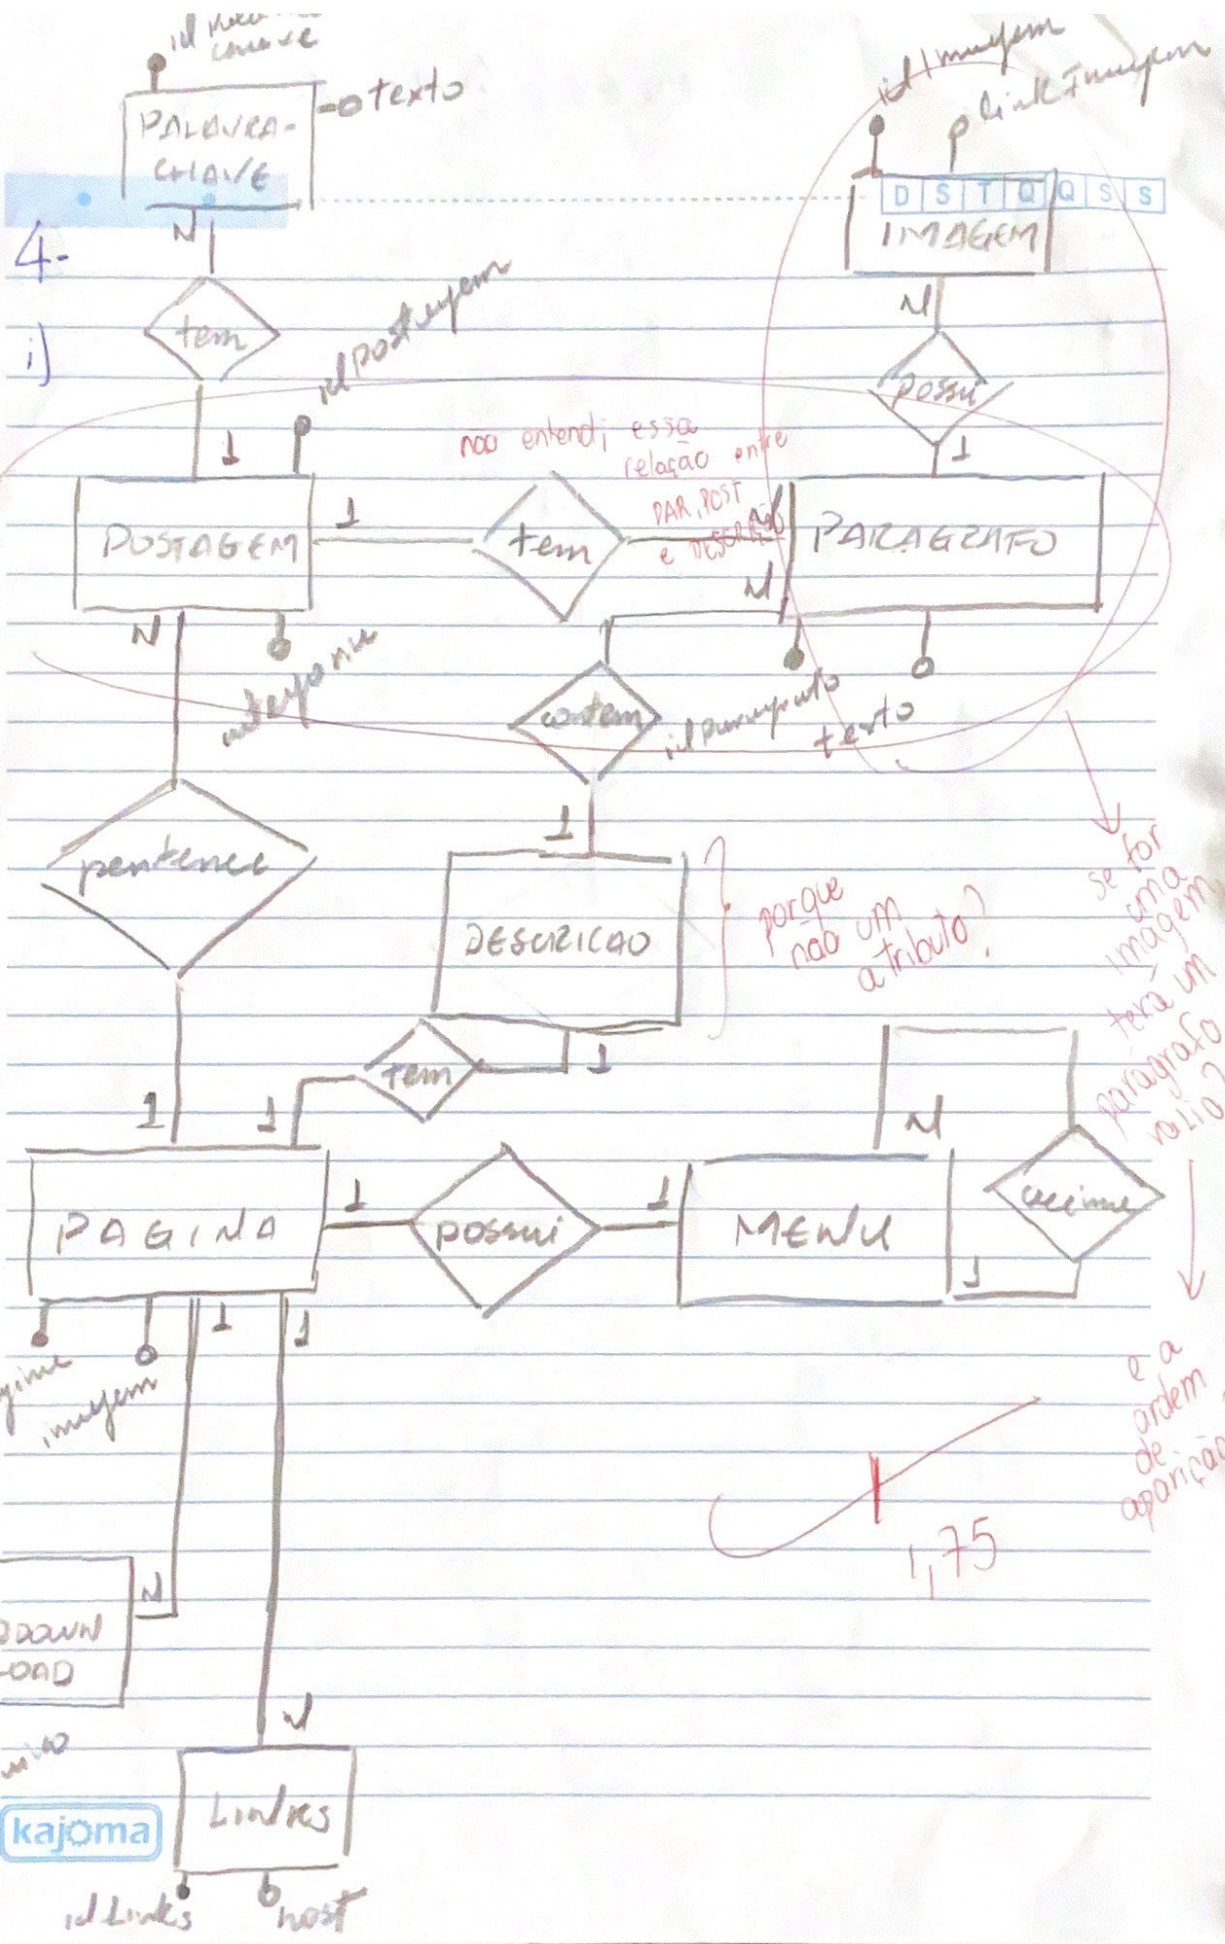 chave
texto
PALAVRA-
CHAVE
idImagem
linkImagem
D S T Q Q S S
IMAGEM
N
4-
i)
tem
idPostagem
N
possui
1
1
não entendi essa
relação entre
PAR, POST
e DESCRIÇÃO
POSTAGEM
1
tem
N
PARAGRAFO
N
N
contem
idParagrafo
texto
pertence
1
DESCRICAO
porque
não um
atributo?
se for
uma
imagem,
terá um
parágrafo
vazio?
tem
1
1
1
N
PAGINA
1
possui
1
MENU
1
1
1
imagem
e a
ordem
de
aparição
1,75
N
DOWN
LOAD
N
LINKS
kajoma
idLinks
host